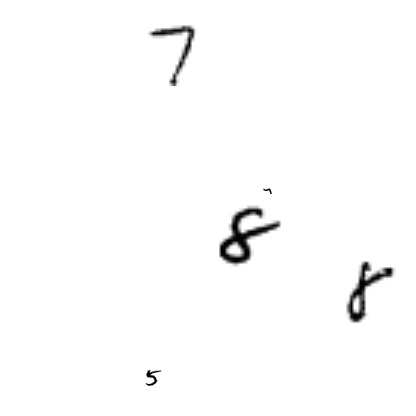 7
8
8
5